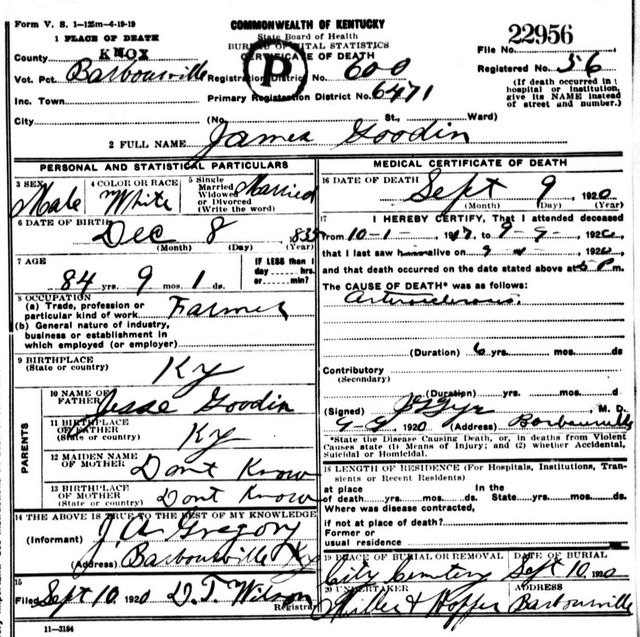 Form V. S. 1—125m—6-19-19
COMMONWEALTH OF KENTUCKY
State Board of Health
BUREAU OF VITAL STATISTICS
CERTIFICATE OF DEATH
P
22956
File No.
1 PLACE OF DEATH
County KNOX
Vot. Pct. Barbourville Registration District No. 600
Registered No. 56
Inc. Town Primary Registration District No. 6471
(If death occurred in a hospital or institution, give its NAME instead of street and number.)
City (No. St., Ward)
2 FULL NAME James Goodin
PERSONAL AND STATISTICAL PARTICULARS
3 SEX Male
4 COLOR OR RACE White
5 Single Married Widowed or Divorced (Write the word) Married
6 DATE OF BIRTH Dec 8 1835
(Month) (Day) (Year)
7 AGE
84 yrs. 9 mos. 1 ds.
IF LESS than 1 day hrs. or min?
8 OCCUPATION
(a) Trade, profession or particular kind of work Farmer
(b) General nature of industry, business or establishment in which employed (or employer)
9 BIRTHPLACE (State or country) Ky
PARENTS
10 NAME OF FATHER Jesse Goodin
11 BIRTHPLACE OF FATHER (State or country) Ky
12 MAIDEN NAME OF MOTHER Dont Know
13 BIRTHPLACE OF MOTHER (State or country) Dont Know
14 THE ABOVE IS TRUE TO THE BEST OF MY KNOWLEDGE
(Informant) J A Gregory
(Address) Barbourville Ky
15
Filed Sept 10, 1920 D. T. Wilson
Registrar
11—3184
MEDICAL CERTIFICATE OF DEATH
16 DATE OF DEATH Sept 9, 1920
(Month) (Day) (Year)
17 I HEREBY CERTIFY, That I attended deceased
from 10-1- 1917, to 9-9- 1920
that I last saw him alive on 1920
and that death occurred on the date stated above at 5 P m.
The CAUSE OF DEATH* was as follows:
(Duration) 6 yrs. mos. ds
Contributory
(Secondary)
(Duration) yrs. mos. d
(Signed) M. D.
9-9 1920 (Address) Barbourville
*State the Disease Causing Death, or, in deaths from Violent
Causes state (1) Means of Injury; and (2) whether Accidental,
Suicidal or Homicidal.
18 LENGTH OF RESIDENCE (For Hospitals, Institutions, Transients or Recent Residents)
at place of death yrs. mos. ds. In the State yrs. mos. ds
Where was disease contracted,
if not at place of death?
Former or
usual residence
19 PLACE OF BURIAL OR REMOVAL City Cemetery
DATE OF BURIAL Sept 10, 1920
20 UNDERTAKER Miller & Hopper
ADDRESS Barbourville